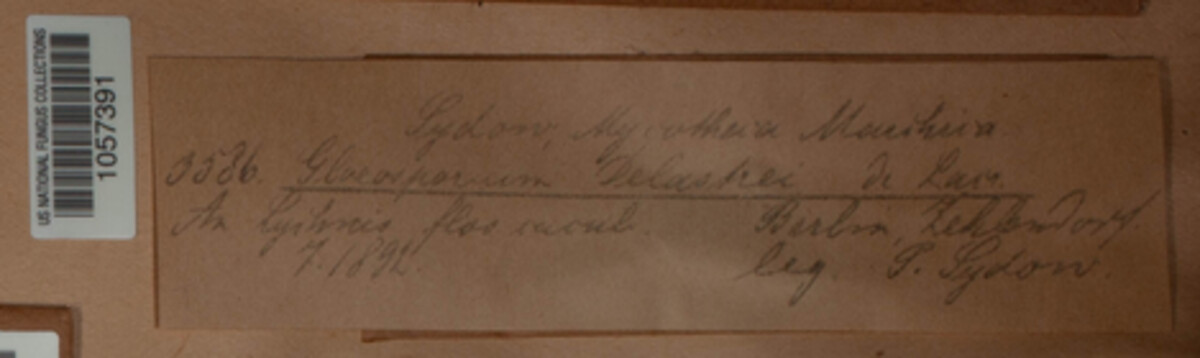 US NATIONAL FUNGUS COLLECTIONS
1057391
Sydow, Mycotheca Marchica
3586. Gloeosporium Delastrei de Lacr.
An Lychnis flos cuculi. Berlin, Zehlendorf.
7. 1892. leg. P. Sydow.